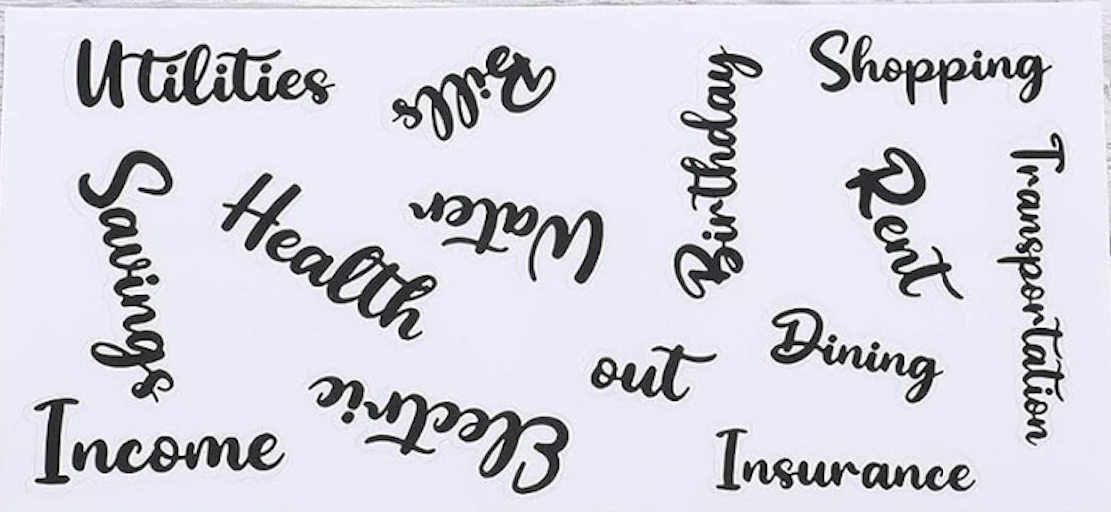 Utilities
Bills
Birthday
Shopping
Savings
Health
Water
Rent
Transportation
Dining
out
Electric
Income
Insurance